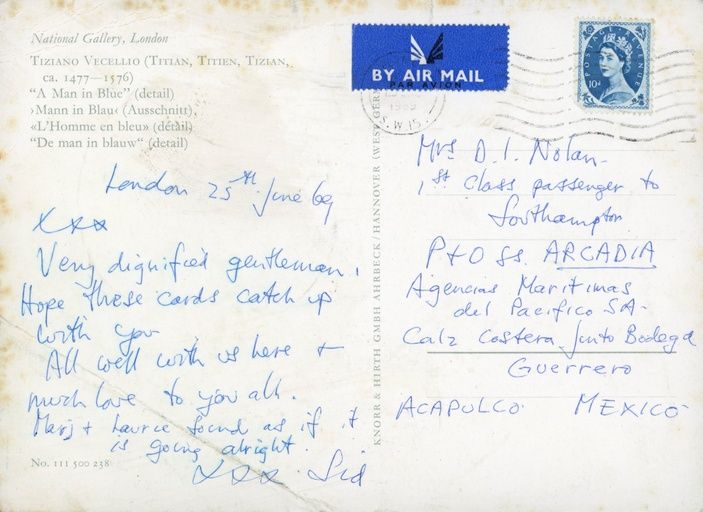 National Gallery, London
TIZIANO VECELLIO (TITIAN, TITIEN, TIZIAN,
ca. 1477—1576)
"A Man in Blue" (detail)
›Mann in Blau‹ (Ausschnitt),
«L'Homme en bleu» (détail)
"De man in blauw" (detail)
London 25th June 69
xxx
Very dignified gentleman,
Hope these cards catch up
with you
All well with us here +
much love to you all.
Marj + Laurie sound as if it
is going alright.
xxx Sid
No. 111 500 238
KNORR & HIRTH GMBH AHRBECK/HANNOVER (WEST GER
BY AIR MAIL
PAR AVION
S.W.15.
POSTAGE REVENUE
10d
Mrs D. I. Nolan
1st Class passenger to
Southampton
P+O SS. ARCADIA
Agencias Maritimas
del Pacifico SA
Calz Costera Junto Bodega
Guerrero
ACAPULCO MEXICO